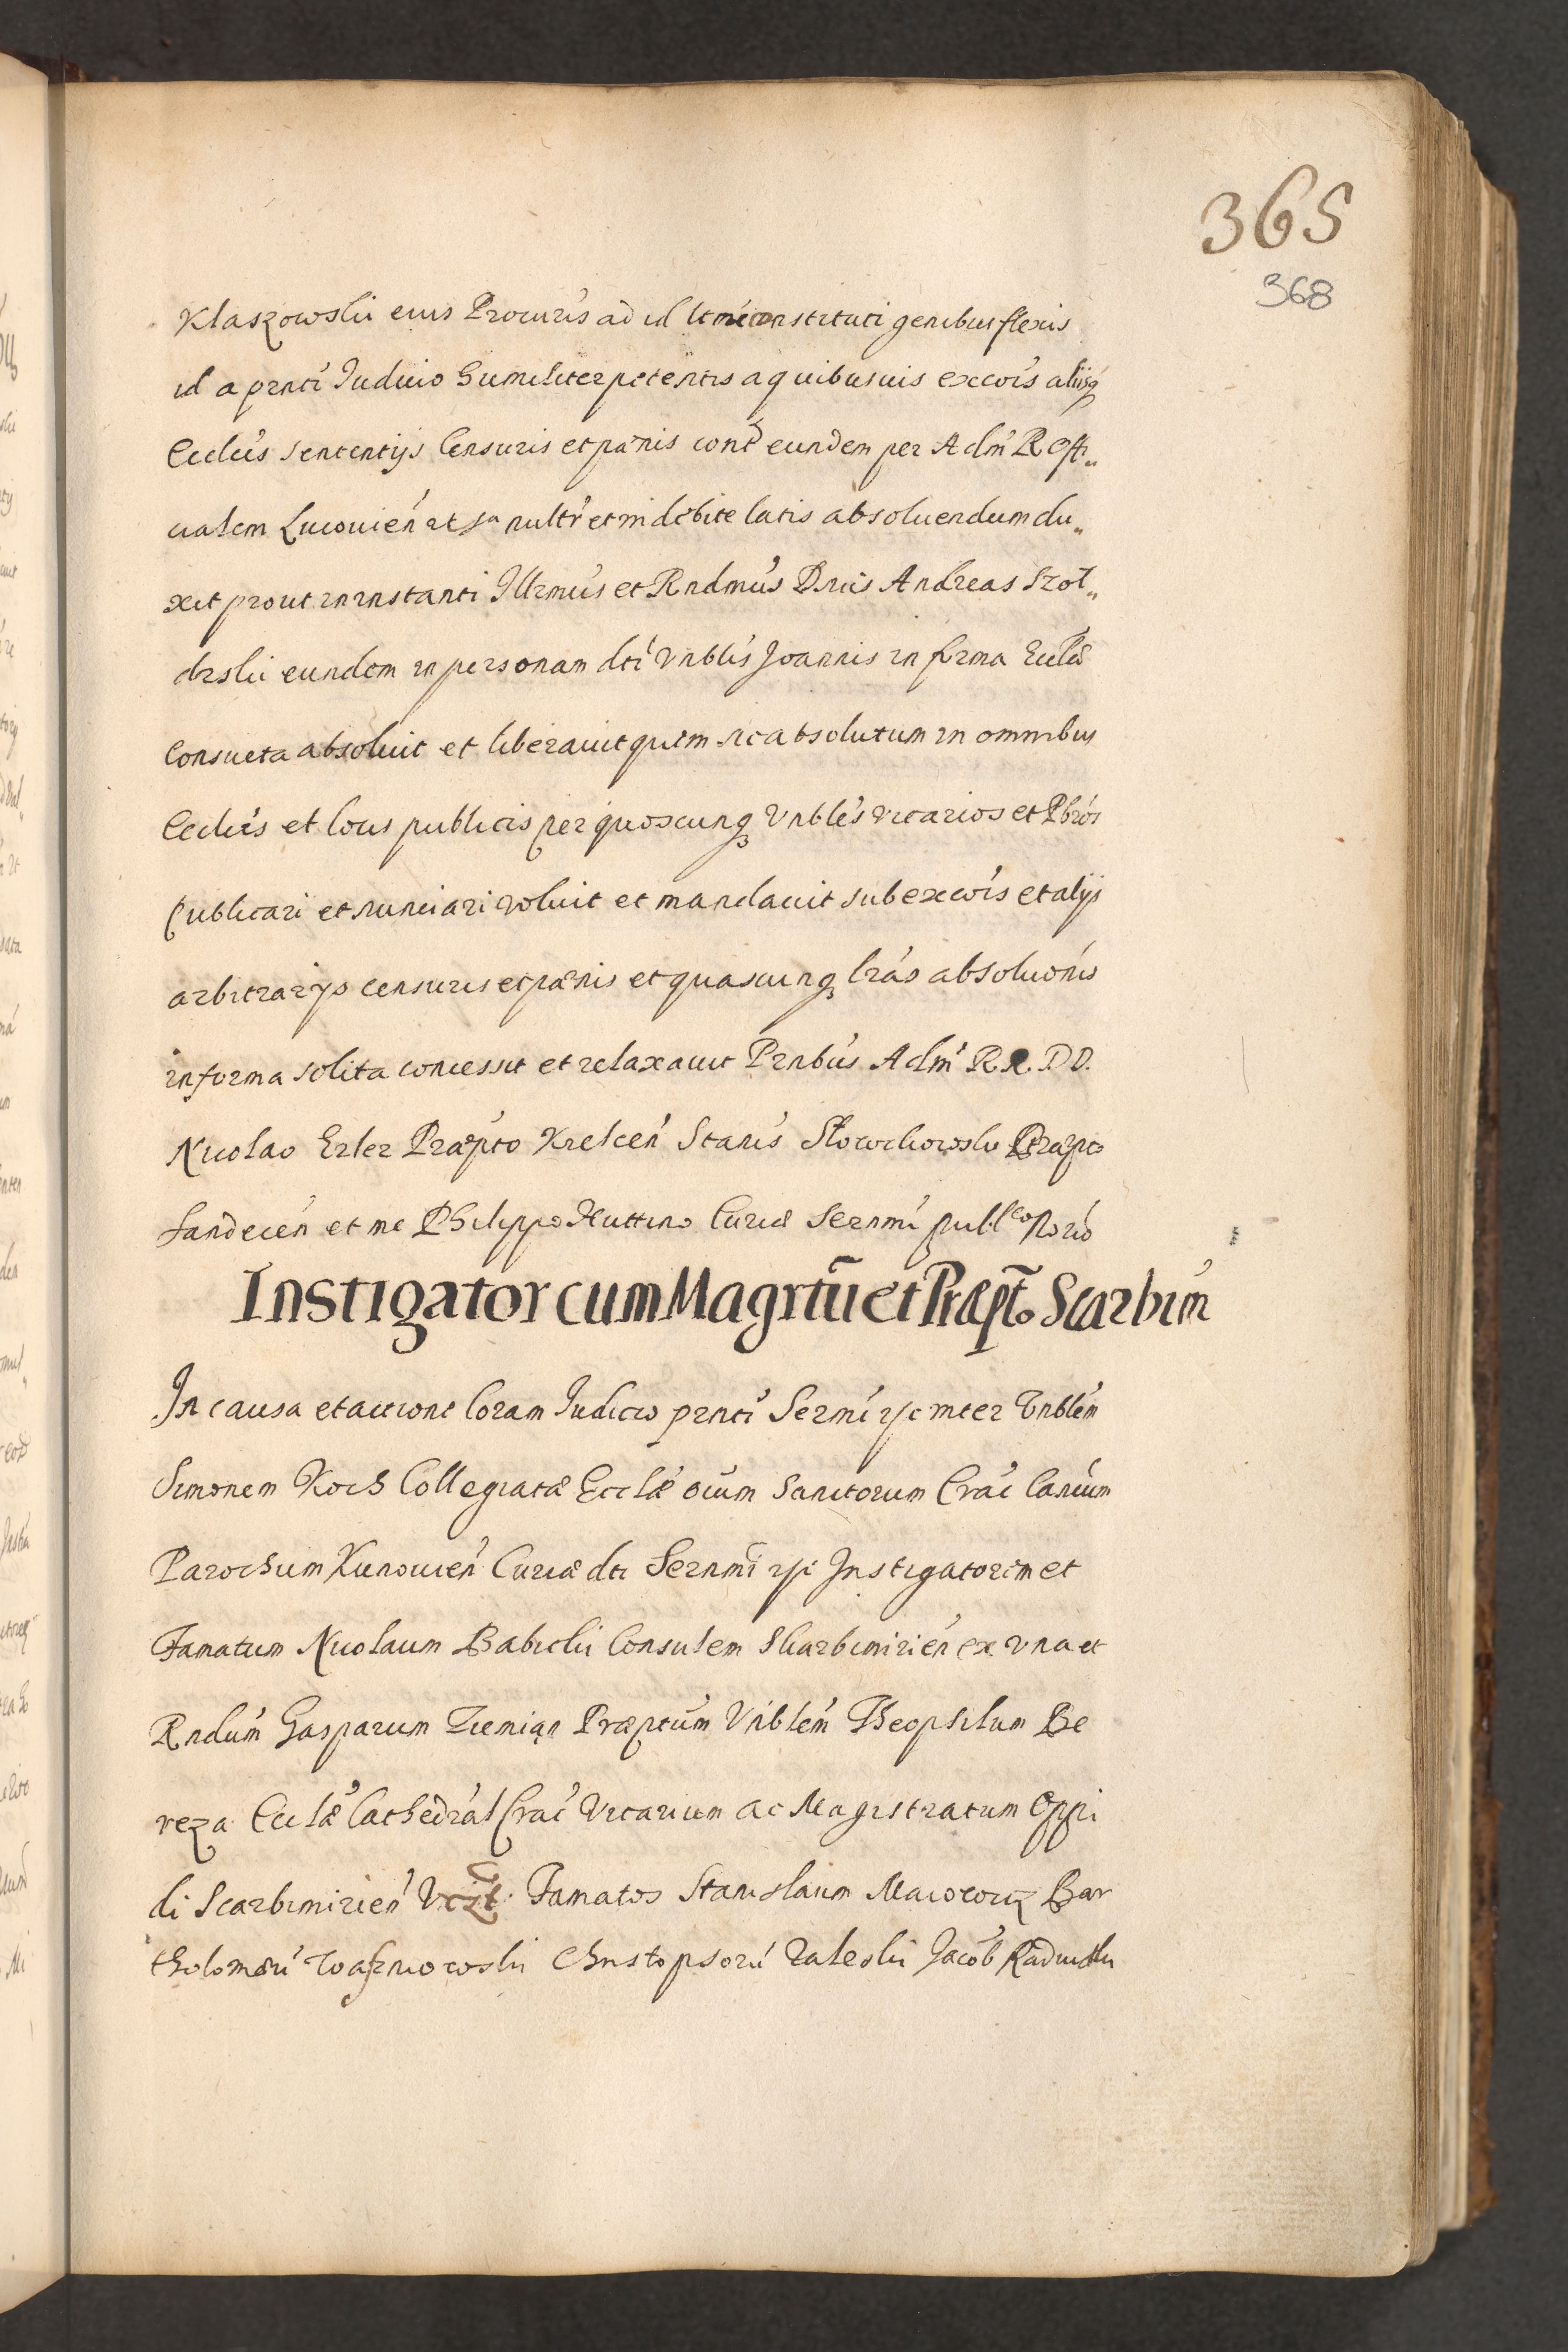 365
368
Klaskowski eius Procuris ad id ltmé constituti genibus flexis
id a prnti Iudicio humiliter petentis a quibusuis excóis alijsq
Ecclcis sententijs Censuris et pænis cont eundem per Adm R Offi„
cialem Lucouien et nultr et indebite latis absoluendum du„
xit prout in instanti Illrmus et Rndmus Dnus Andreas Szoł„
drski eundem in personam dti Vnblis Joannis in forma Eccłæ
Consueta absoluit et liberauit quem sic absolutum in omnibus
Ecclijs et locis publicis per quoscunq Vnbles vicarios et Pbros
publicari et nunciari voluit et mandauit sub excóis et alijs
arbitrarijs censuris et pænis et quascunq lras absoluonis
in forma solita concessit et relaxauit Prnbus Adm R R. D D.
Nicolao Erler Præpto Kielcen Stanis Słowikowski Præpto
Sandecen et me Philippo Huttino Curiæ Sernmi publco Norio
Instigator cum Magrtu et Præpto Scarbim
In causa et actione Coram Iudicio prnti Sernmi rpi inter Vnblem
Simonem Koch Collegiatæ Ecclæ oium Sanctorum Crac Canicum
Parochum Kunouien Curiæ dti Sernmi rpi Instigatorem et
Famatum Nicolaum Babicki Consulem Skarbimirien ex vna et
Rndum Gasparum Ziemian Præptum Vnblem Theophilum Be
reza Ecclæ Cathedral Crac Vicarium ac Magistratum Oppi
di Scarbimirien Vczt. Famatos Stanislaum Bar
tholomæu Christophoru Zaleski Jacob Radwski